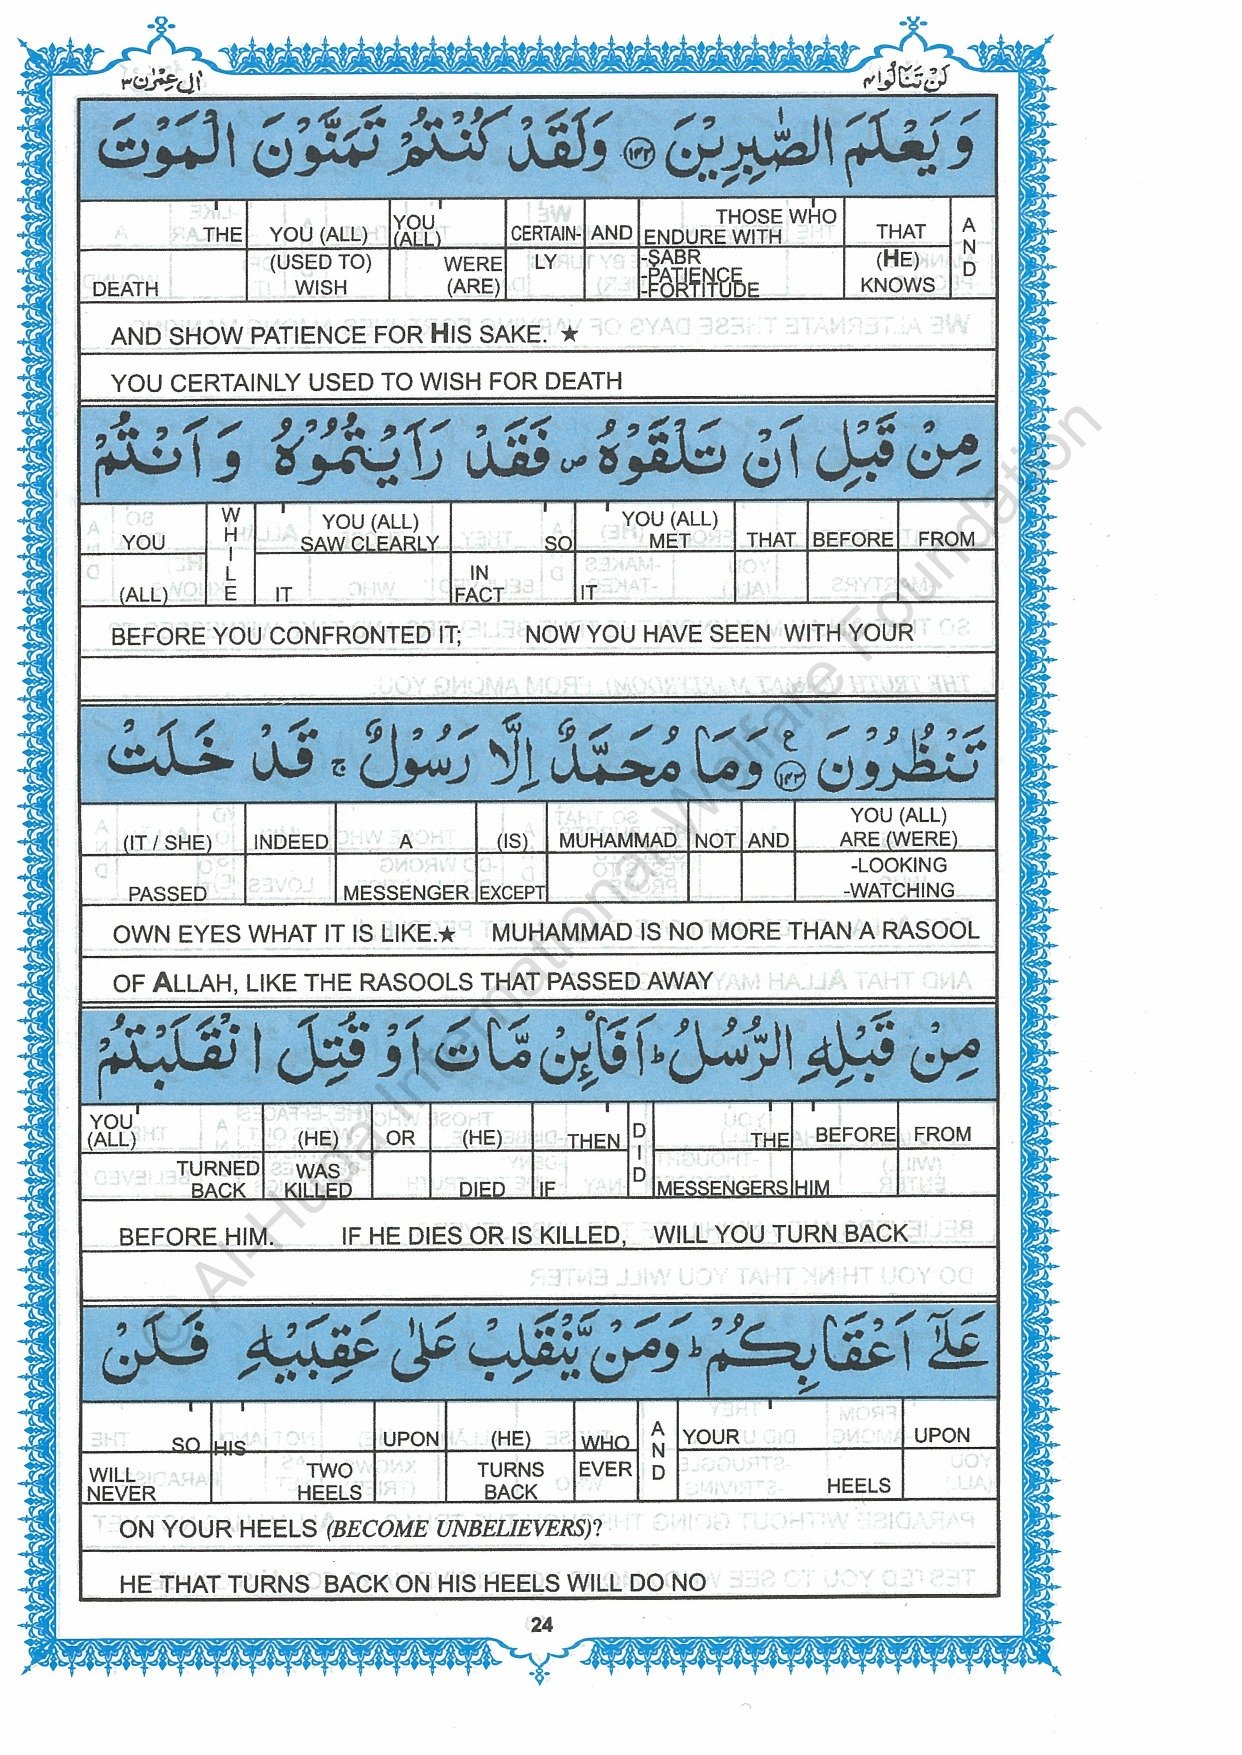 اٰل عِمْرٰن ٣
لَنْ تَنَالُوا ٤
وَ يَعْلَمَ الصّٰبِرِيْنَ ١٤٢ وَلَقَدْ كُنْتُمْ تَمَنَّوْنَ الْمَوْتَ
THE YOU (ALL) YOU (ALL) CERTAIN- AND THOSE WHO ENDURE WITH THAT AND
DEATH (USED TO) WISH WERE (ARE) LY -SABR -PATIENCE -FORTITUDE (HE) KNOWS
AND SHOW PATIENCE FOR HIS SAKE. ★
YOU CERTAINLY USED TO WISH FOR DEATH
مِنْ قَبْلِ اَنْ تَلْقَوْهُ ص فَقَدْ رَاَيْتُمُوْهُ وَ اَنْتُمْ
YOU WHILE YOU (ALL) SAW CLEARLY SO YOU (ALL) MET THAT BEFORE FROM
(ALL) IT IN FACT IT
BEFORE YOU CONFRONTED IT; NOW YOU HAVE SEEN WITH YOUR
تَنْظُرُوْنَ ١٤٣ ع وَمَا مُحَمَّدٌ اِلَّا رَسُوْلٌ ج قَدْ خَلَتْ
(IT / SHE) INDEED A (IS) MUHAMMAD NOT AND YOU (ALL) ARE (WERE)
PASSED MESSENGER EXCEPT -LOOKING -WATCHING
OWN EYES WHAT IT IS LIKE.★ MUHAMMAD IS NO MORE THAN A RASOOL
OF ALLAH, LIKE THE RASOOLS THAT PASSED AWAY
مِنْ قَبْلِهِ الرُّسُلُ ط اَفَا۟ئِنْ مَّاتَ اَوْ قُتِلَ انْقَلَبْتُمْ
YOU (ALL) (HE) OR (HE) THEN DID THE BEFORE FROM
TURNED BACK WAS KILLED DIED IF MESSENGERS HIM
BEFORE HIM. IF HE DIES OR IS KILLED, WILL YOU TURN BACK
عَلٰٓى اَعْقَابِكُمْ ط وَمَنْ يَّنْقَلِبْ عَلٰى عَقِبَيْهِ فَلَنْ
SO HIS UPON (HE) WHO AND YOUR UPON
WILL NEVER TWO HEELS TURNS BACK EVER HEELS
ON YOUR HEELS (BECOME UNBELIEVERS)?
HE THAT TURNS BACK ON HIS HEELS WILL DO NO
24
© Al-Huda International Welfare Foundation